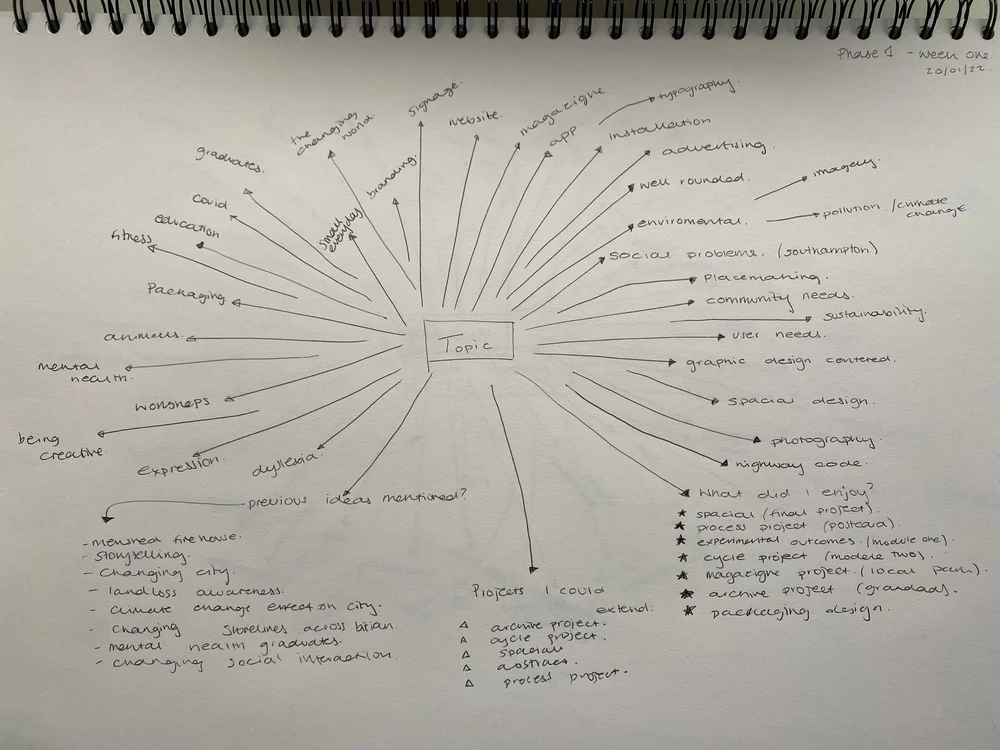 Phase 1 - week one
20/01/22
signage.
website.
magazigne.
app.
typography.
installation
advertising.
the
changing
world.
branding.
graduates.
covid
small
everyday
education
fitness
Packaging
animals.
mental
health.
worksheps
being
creative.
expression.
dyslexia.
well rounded.
imagery.
enviromental.
pollution /climate
change.
social problems. (southampton)
placemaking.
community needs.
sustainability.
user needs.
graphic design centered.
Topic
spacial design.
photography.
highway code.
previous ideas mentioned?
- storytelling.
- Changing city.
- land loss awareness.
- climate change effect on city.
- Changing shorelines across
- mental health graduates.
- changing social interaction.
Projects I could
extend:
archive project.
cycle project.
spacial
abstract.
process project.
What did I enjoy?
★ spacial (final project).
★ process project (postcard).
★ experimental outcomes (module one).
★ cycle project (module two).
★ magazigne project. (local park).
★ archive project (grandads).
★ packaging design.